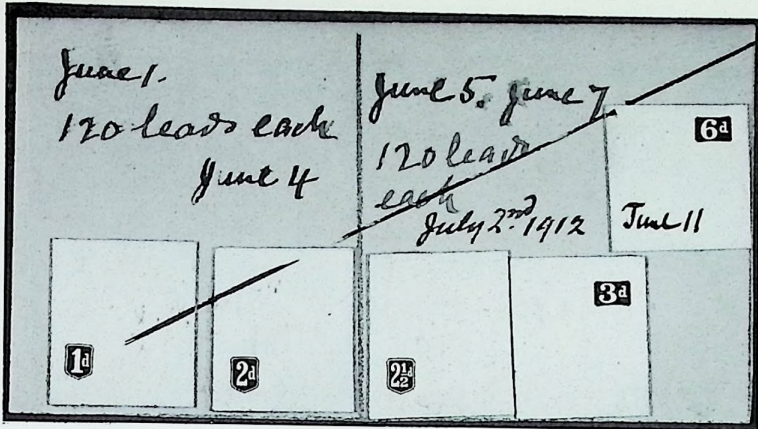 June 1.
120 leads each
June 4
June 5. June 7
120 leads
each
July 2nd. 1912
6d
June 11
1d
2d
2½d
3d